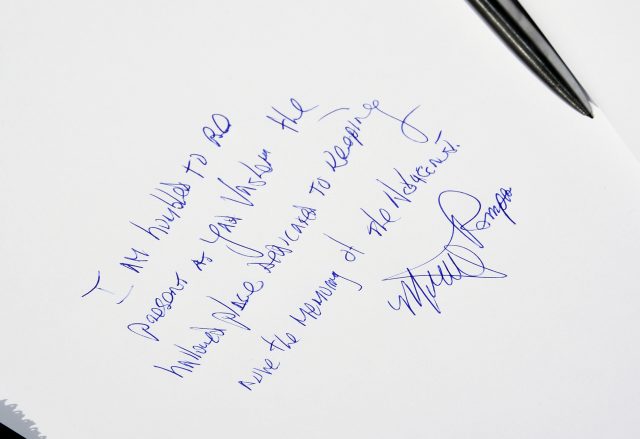 I AM humbled to BE
present at Yad Vashem the
hallowed place dedicated to keeping
alive the Memory of the Holocaust.